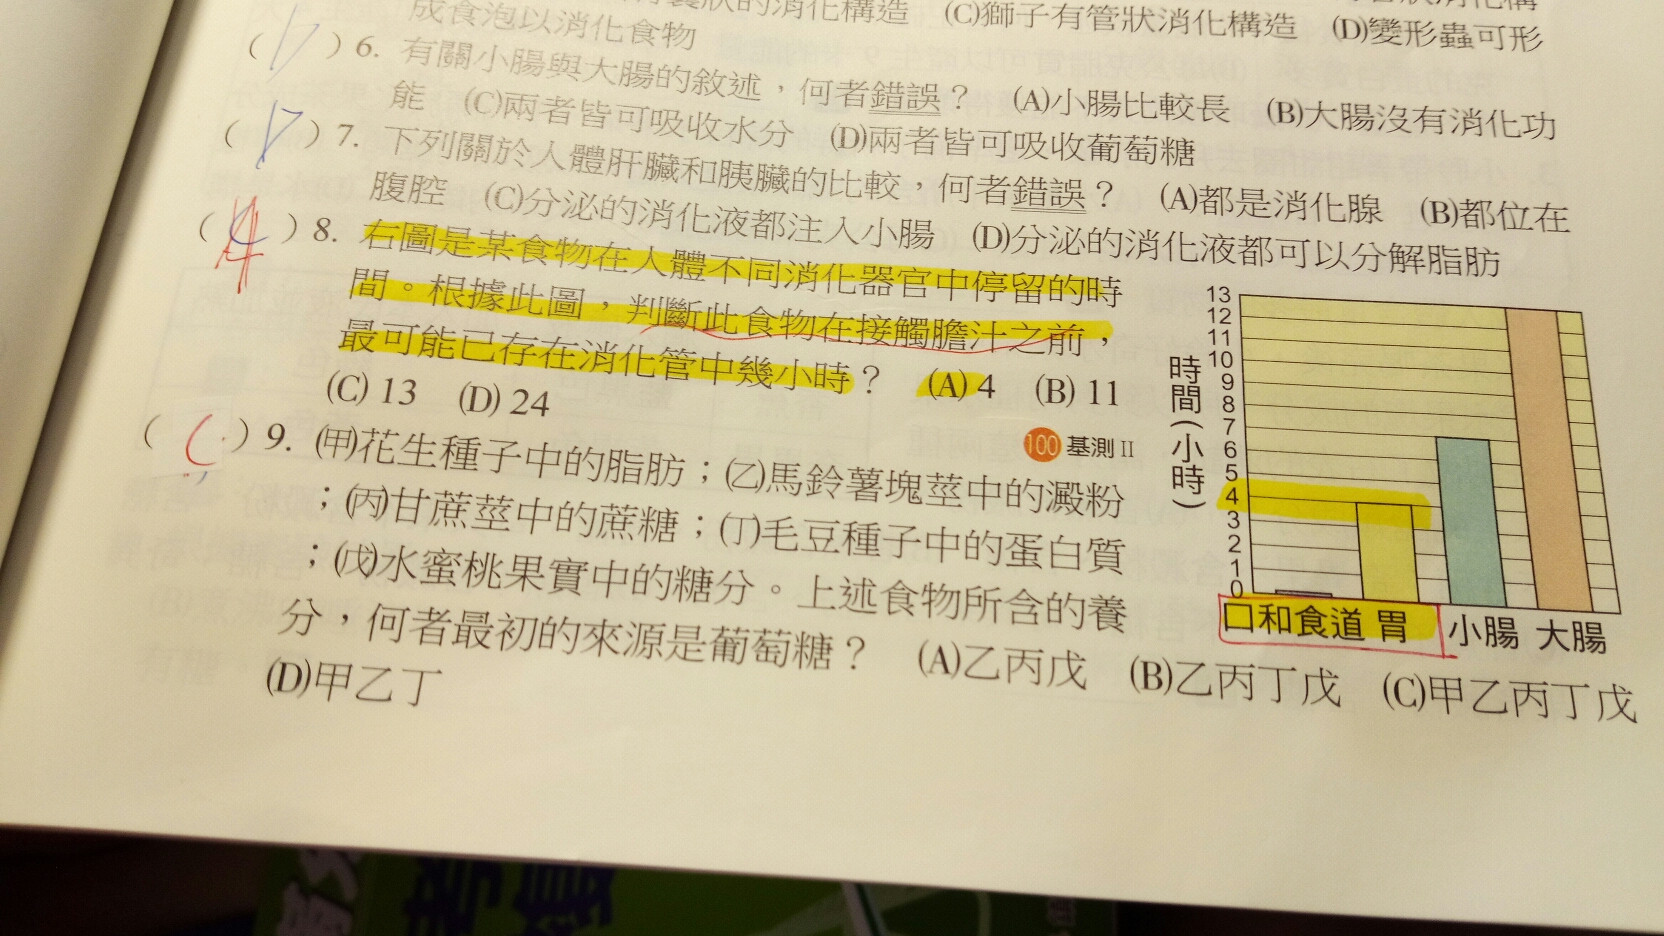 狀的消化構造 (C)獅子有管狀消化構造 (D)變形蟲可形
成食泡以消化食物
(D) 6. 有關小腸與大腸的敘述，何者錯誤？ (A)小腸比較長 (B)大腸沒有消化功
能 (C)兩者皆可吸收水分 (D)兩者皆可吸收葡萄糖
(D) 7. 下列關於人體肝臟和胰臟的比較，何者錯誤？ (A)都是消化腺 (B)都位在
腹腔 (C)分泌的消化液都注入小腸 (D)分泌的消化液都可以分解脂肪
(A) 8. 右圖是某食物在人體不同消化器官中停留的時
間。根據此圖，判斷此食物在接觸膽汁之前，
最可能已存在消化管中幾小時？ (A) 4 (B) 11
(C) 13 (D) 24
100 基測 II
(C) 9. (甲)花生種子中的脂肪；(乙)馬鈴薯塊莖中的澱粉
；(丙)甘蔗莖中的蔗糖；(丁)毛豆種子中的蛋白質
；(戊)水蜜桃果實中的糖分。上述食物所含的養
分，何者最初的來源是葡萄糖？ (A)乙丙戊 (B)乙丙丁戊 (C)甲乙丙丁戊
(D)甲乙丁
時間(小時)
13
12
11
10
9
8
7
6
5
4
3
2
1
0
口和食道 胃 小腸 大腸